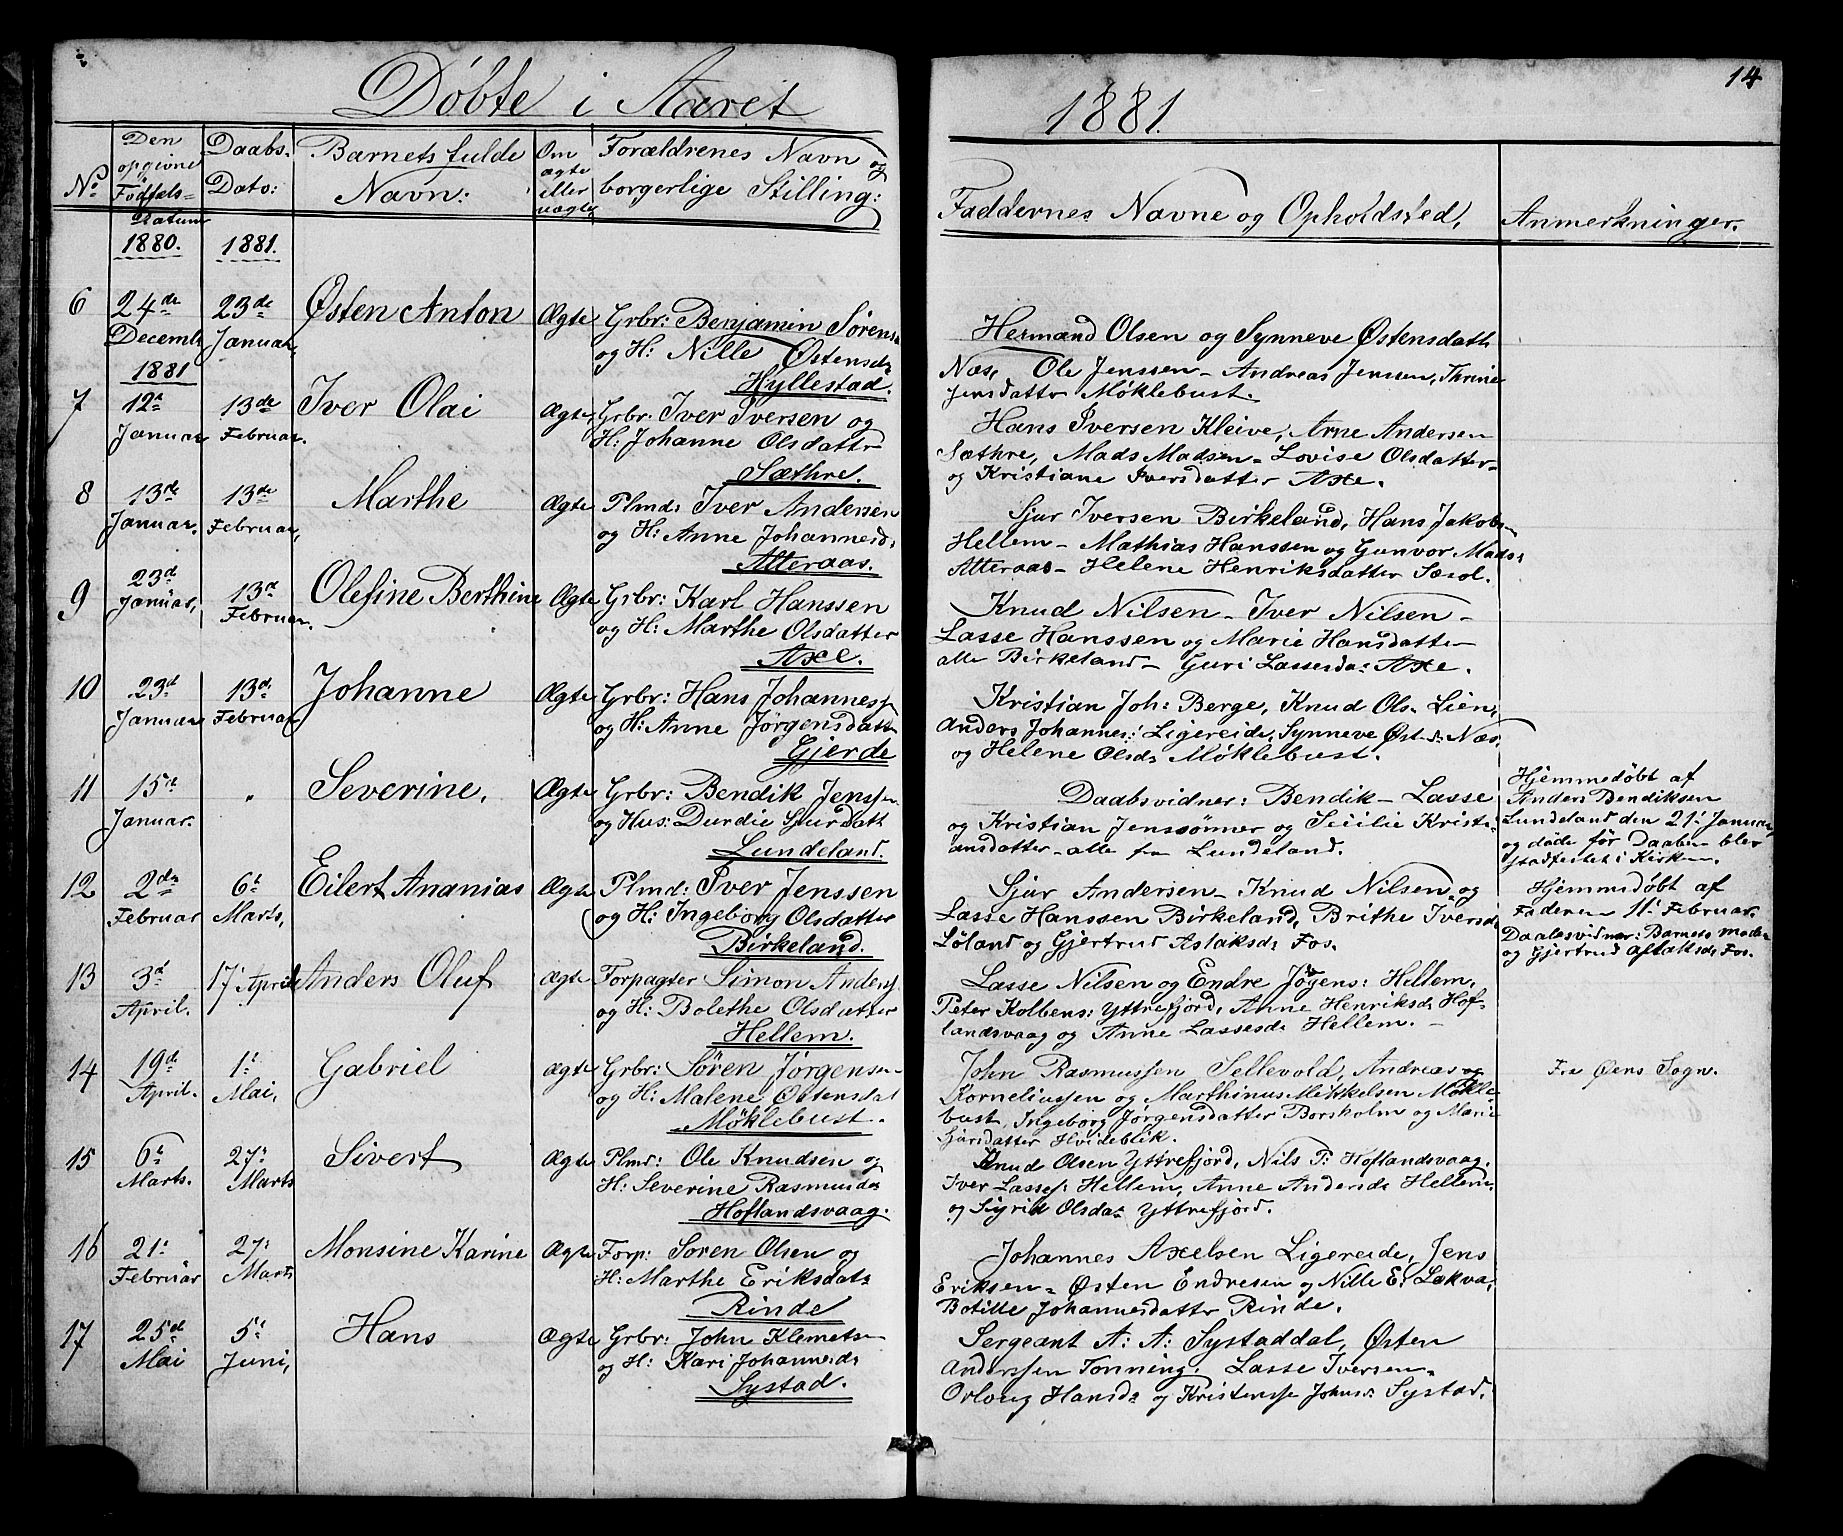 Døbte i Aaret
1881.
14
No
Den opgivne Fødsels= Datum
Daabs. Dato:
Barnets fulde Navn:
Om ægte eller uægte
Forældrenes Navn og borgerlige Stilling:
Faddernes Navne og Opholdsted.
Anmerkninger.
1880. 1881.
6 24de Decembr 23de Januar. Østen Anton Ægte
Grbr: Benjamin Sørens.
og H: Nille Østensd:
Hyllestad.
Hermand Olsen og Synneve Østensdatt.
Næs, Ole Jenssen – Andreas Jenssen, Thrine
Jensdatter Møklebust.
1881
7 12t Januar 13de Februar. Iver Olai Ægte
Grbr: Iver Iversen og
H: Johanne Olsdatter
Sæthre.
Hans Iversen Kleive, Arne Andersen
Sæthre, Mads Madsen – Lovise Olsdatter –
og Kristiane Iversdatter Axe.
8 13d Januar. 13de Februar, Marthe Ægte
Plmd: Iver Andersen
og H: Anne Johannesd.
Atteraas.
Sjur Iversen Birkeland, Hans Jakobs–
Hellem – Mathias Hanssen og Gunvor Mads:
Atteraas – Helene Henriksdatter Sæsol.
9 23d Januar, 13d Februar. Olefine Berthine Ægte
Grbr: Karl Hanssen
og H: Marthe Olsdatter
Axe.
Knud Nilsen – Iver Nilsen –
Lasse Hanssen og Marie Hansdatter –
alle Birkeland – Guri Lassesda: Axe.
10 23d Januar 13d Februar Johanne Ægte
Grbr: Hans Johanness.
og H: Anne Jørgensdatt.
Gjerde
Kristian Joh: Berge, Knud Ols. Lien,
Anders Johannes: Ligereide, Synneve Østd: Næs,
og Helene Olsd: Møklebust.
11 15d Januar. " Severine, Ægte
Grbr: Bendik Jenssen
og Hus: Durdie Sjurdatt
Lundeland.
Daabsvidner: Bendik – Lasse
og Kristian Jenssønner og Scicilie Kristi–
ansdatter – alle fra Lundeland.
Hjemmedøbt af
Anders Bendiksen
Lundeland den 21' Januar,
og døde før Daaben blev
stadfestet i Kirken.
12 2de Februar 6t Marts, Eilert Ananias Ægte
Plmd: Iver Jenssen
og H: Ingeborg Olsdatter
Birkeland.
Sjur Andersen – Knud Nilsen og
Lasse Hanssen Birkeland, Brithe Iversd.
Løland og Gjertrud Aslaksd: Fos.
Hjemmedøbt af
Faderen 11t Februar.
Daabsvidner: Barnets moder
og Gjertrud Aslaksd: Fos.
13 3d April. 17' April Anders Oluf ægte
Forpagter Simon Anders.
og H: Bolethe Olsdatter
Hellem.
Lasse Nilsen og Endre Jøgens: Hellem,
Peter Kolbens: Yttrefjord, Anne Henriksd: Hof–
landsvaag og Anne Lassesd: Hellem. –
14 19d April. 1t Mai, Gabriel ægte
Grbr: Søren Jørgensen
og H: Malene Østensdat
Møklebust.
John Rasmussen Sellevold, Andreas og
Korneliussen og Marthinus Mikkelsen Møkle
bust, Ingeborg Jørgensdatter Borsholm og Marie
Sjursdatter Hvideblik.
Fra Øens Sogn.
15 6t Marts. 27: Marts Sivert Ægte
Plmd: Ole Knudsen og
H: Severine Rasmusd:
Hoflandsvaag.
Knud Olsen Yttrefjord, Nils P: Hoflandsvaag.
Iver Lasses: Hellem, Anne Andersd: Hellem.
og Sigrid Olsda: Yttrefjord.
16 21: Februar 27: Marts Monsine Karine Ægte
Forp: Søren Olsen og
H: Marthe Eriksdat:
Rinde
Johannes Axelsen Ligereide, Jens
Eriksen – Østen Endresen og Nille E: Lekva,
Botille Johannesdatter Rinde.
17 25d Mai 5t Juni, Hans Ægte
Grbr: John Klemets–
og H: Kari Johannesd:
Systad.
Sergeant A: A: Systaddal, Østen
Anderssen Tonning. Lasse Iversen –
Orloug Hansd: og Kristensse Johns: Systad.